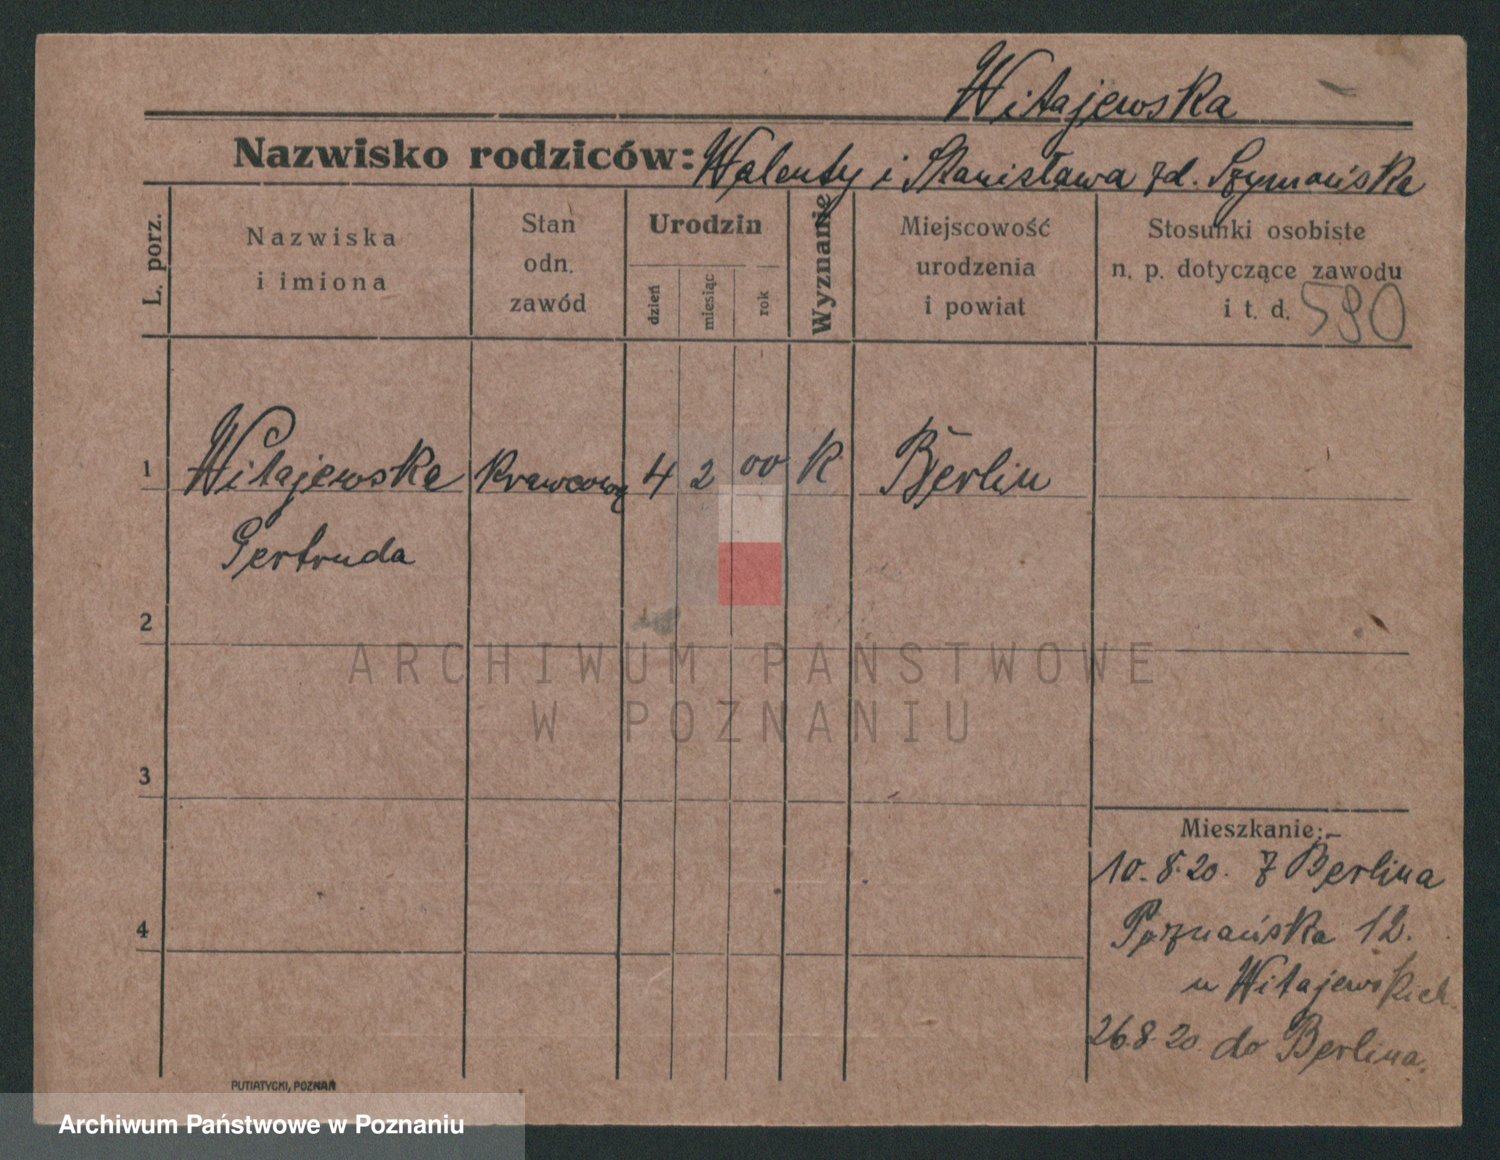 Witajewska
Nazwisko rodziców: Walenty i Stanisława zd. Szymańska
L. porz.
Nazwiska
i imiona
Stan
odn.
zawód
Urodzin
dzień
miesiąc
rok
Wyznanie
Miejscowość
urodzenia
i powiat
Stosunki osobiste
n. p. dotyczące zawodu
i t. d. 590
1 Witajewska Krawcową 4 2 00 K Berlin
Gertruda
2
ARCHIWUM PAŃSTWOWE
W POZNANIU
3
Mieszkanie:
10.8.20. z Berlina
4
Poznańska 12.
u Witajewskich
26.8.20 do Berlina.
PUTIATYCKI, POZNAŃ
Archiwum Państwowe w Poznaniu